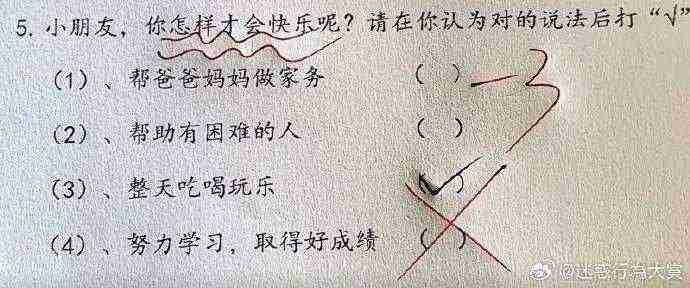 5. 小朋友，你怎样才会快乐呢？请在你认为对的说法后打“√”
(1)、帮爸爸妈妈做家务 ( ) -3
(2)、帮助有困难的人 ( )
(3)、整天吃喝玩乐 (✓)
(4)、努力学习，取得好成绩 ( )
@迷惑行为大赏